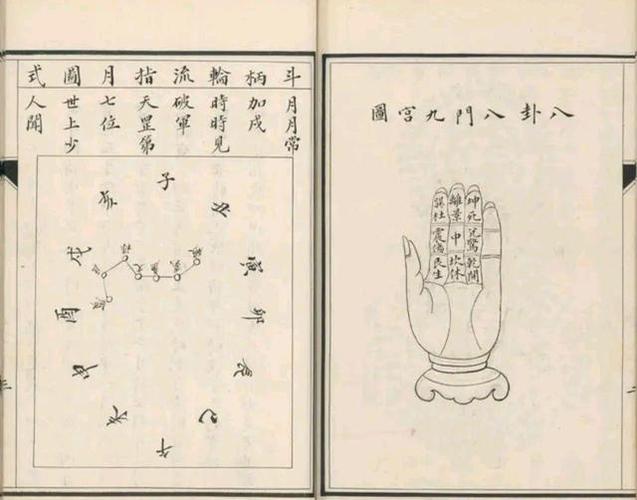 八卦八門九宮圖
坤死
兌驚
乾開
離景
中
坎休
巽杜
震傷
艮生
斗柄輪流指月圖式
月月常
加戌
時時見
破軍
天罡第
七位
世上少
人聞
子
丑
寅
卯
辰
巳
午
未
申
酉
戌
亥